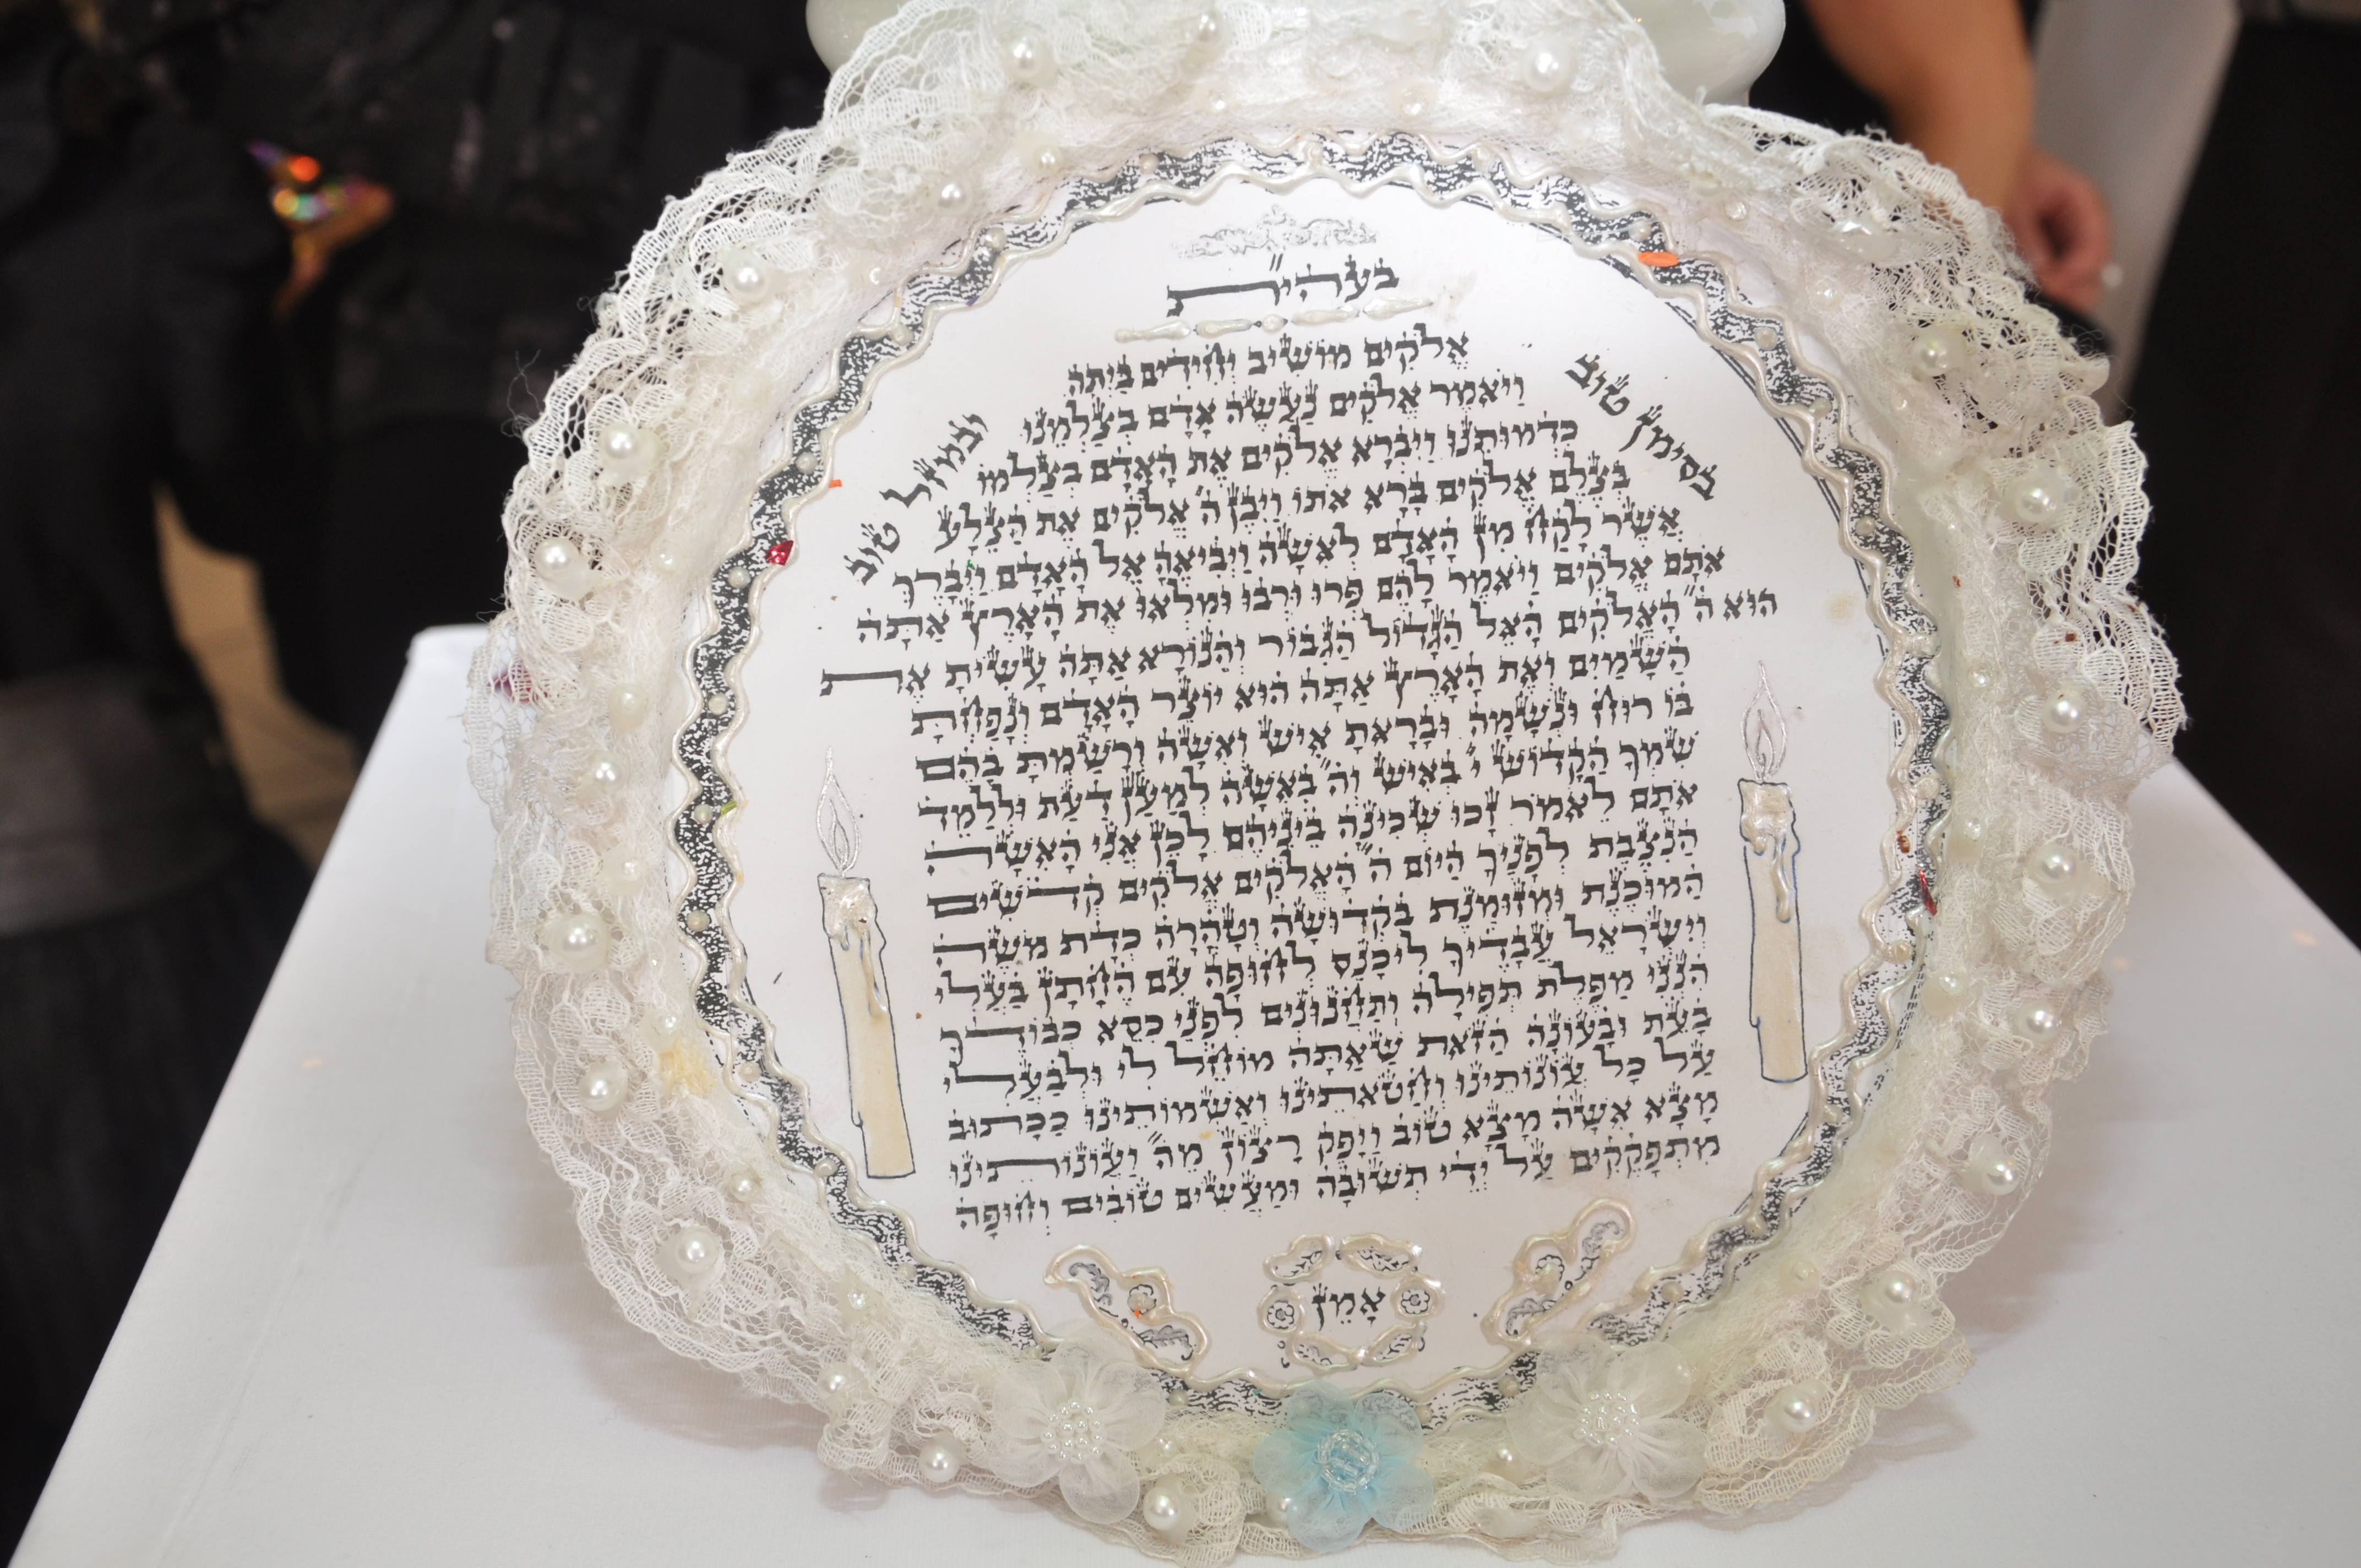 בעזהי״ת
בסימן טוב
ובמזל טוב
אֱלֹקִים מוֹשִׁיב יְחִידִים בַּיְתָה
וַיֹּאמֶר אֱלֹקִים נַעֲשֶׂה אָדָם בְּצַלְמֵנוּ
כִּדְמוּתֵנוּ וַיִּבְרָא אֱלֹקִים אֶת הָאָדָם בְּצַלְמוֹ
בְּצֶלֶם אֱלֹקִים בָּרָא אֹתוֹ וַיִּבֶן ה״ אֱלֹקִים אֶת הַצֵּלָע
אֲשֶׁר לָקַח מִן הָאָדָם לְאִשָּׁה וַיְבִיאֶהָ אֶל הָאָדָם וַיְבָרֶךְ
אֹתָם אֱלֹקִים וַיֹּאמֶר לָהֶם פְּרוּ וּרְבוּ וּמִלְאוּ אֶת הָאָרֶץ אַתָּה
הוּא ה״ הָאֱלֹקִים הָאֵל הַגָּדוֹל הַגִּבּוֹר וְהַנּוֹרָא אַתָּה עָשִׂיתָ אֶת
הַשָּׁמַיִם וְאֶת הָאָרֶץ אַתָּה הוּא יוֹצֵר הָאָדָם וְנָפַחְתָּ
בּוֹ רוּחַ וּנְשָׁמָה וּבָרָאתָ אִישׁ וְאִשָּׁה וְרָשַׁמְתָּ בָּהֶם
שִׁמְךָ הַקָּדוֹשׁ י״ בְּאִישׁ וְה״ בְּאִשָּׁה לְמַעַן דַּעַת וּלְלַמֵּד
אֹתָם לֵאמֹר זָכוּ שְׁכִינָה בֵּינֵיהֶם לָכֵן אֲנִי הָאִשָּׁה
הַנִּצֶּבֶת לְפָנֶיךָ הַיּוֹם ה״ הָאֱלֹקִים אֱלֹקִים קְדֹשִׁים
הַמּוּכֶנֶת וּמְזוּמֶּנֶת בִּקְדוּשָּׁה וְטָהֳרָה כְּדַת מֹשֶׁה
וְיִשְׂרָאֵל עֲבָדֶיךָ לִיכָּנֵס לְחוּפָּה עִם הֶחָתָן בַּעֲלִי
הִנְנִי מַפֶּלֶת תְּפִילָּה וְתַחֲנוּנִים לִפְנֵי כִּסֵּא כְּבוֹדֶךָ
בָּעֵת וּבָעוֹנָה הַזֹּאת שֶׁאַתָּה מוֹחֵל לִי וּלְבַעֲלִי
עַל כָּל עֲוֹנוֹתֵינוּ וְחַטֹּאתֵינוּ וְאַשְׁמוֹתֵינוּ כַּכָּתוּב
מָצָא אִשָּׁה מָצָא טוֹב וַיָּפֶק רָצוֹן מֵה״ וַעֲוֹנוֹתֵינוּ
מִתְפָּקְקִים עַל יְדֵי תְּשׁוּבָה וּמַעֲשִׂים טוֹבִים וְחוּפָּה
אָמֵן